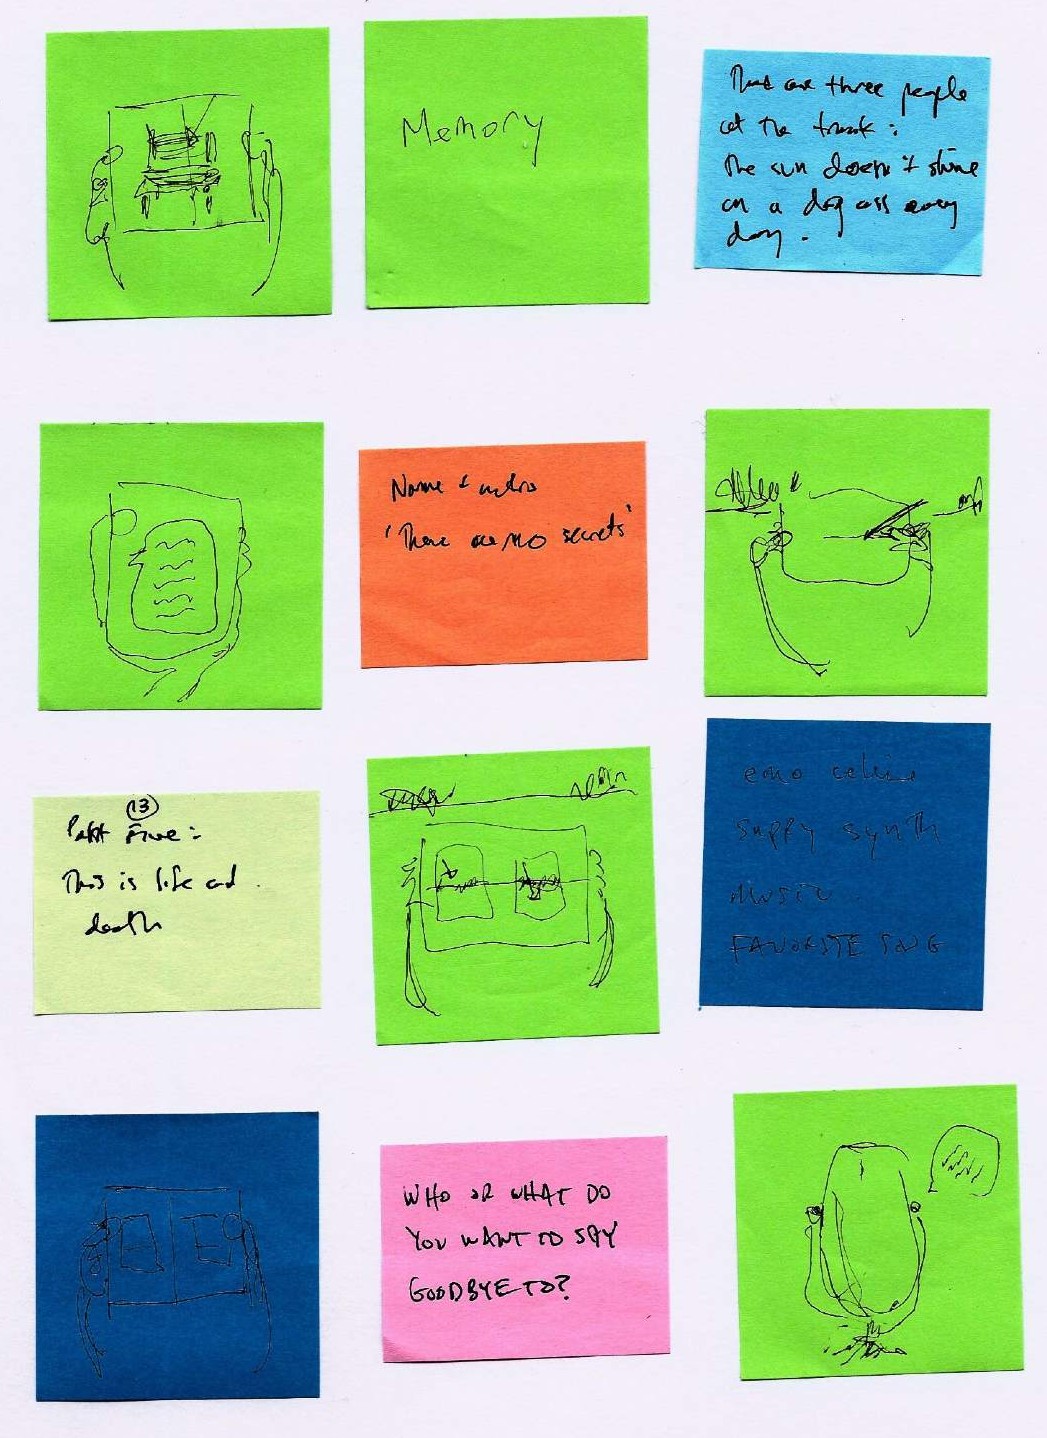 Memory
There are three people
at the track:
the sun doesn't shine
on a dog ass every
day.
Name &
'There are no secrets'
13
Part Five:
This is life and
death
emo
sappy synth
music
FAVORITE SONG
WHO OR WHAT DO
YOU WANT TO SAY
GOODBYE TO?